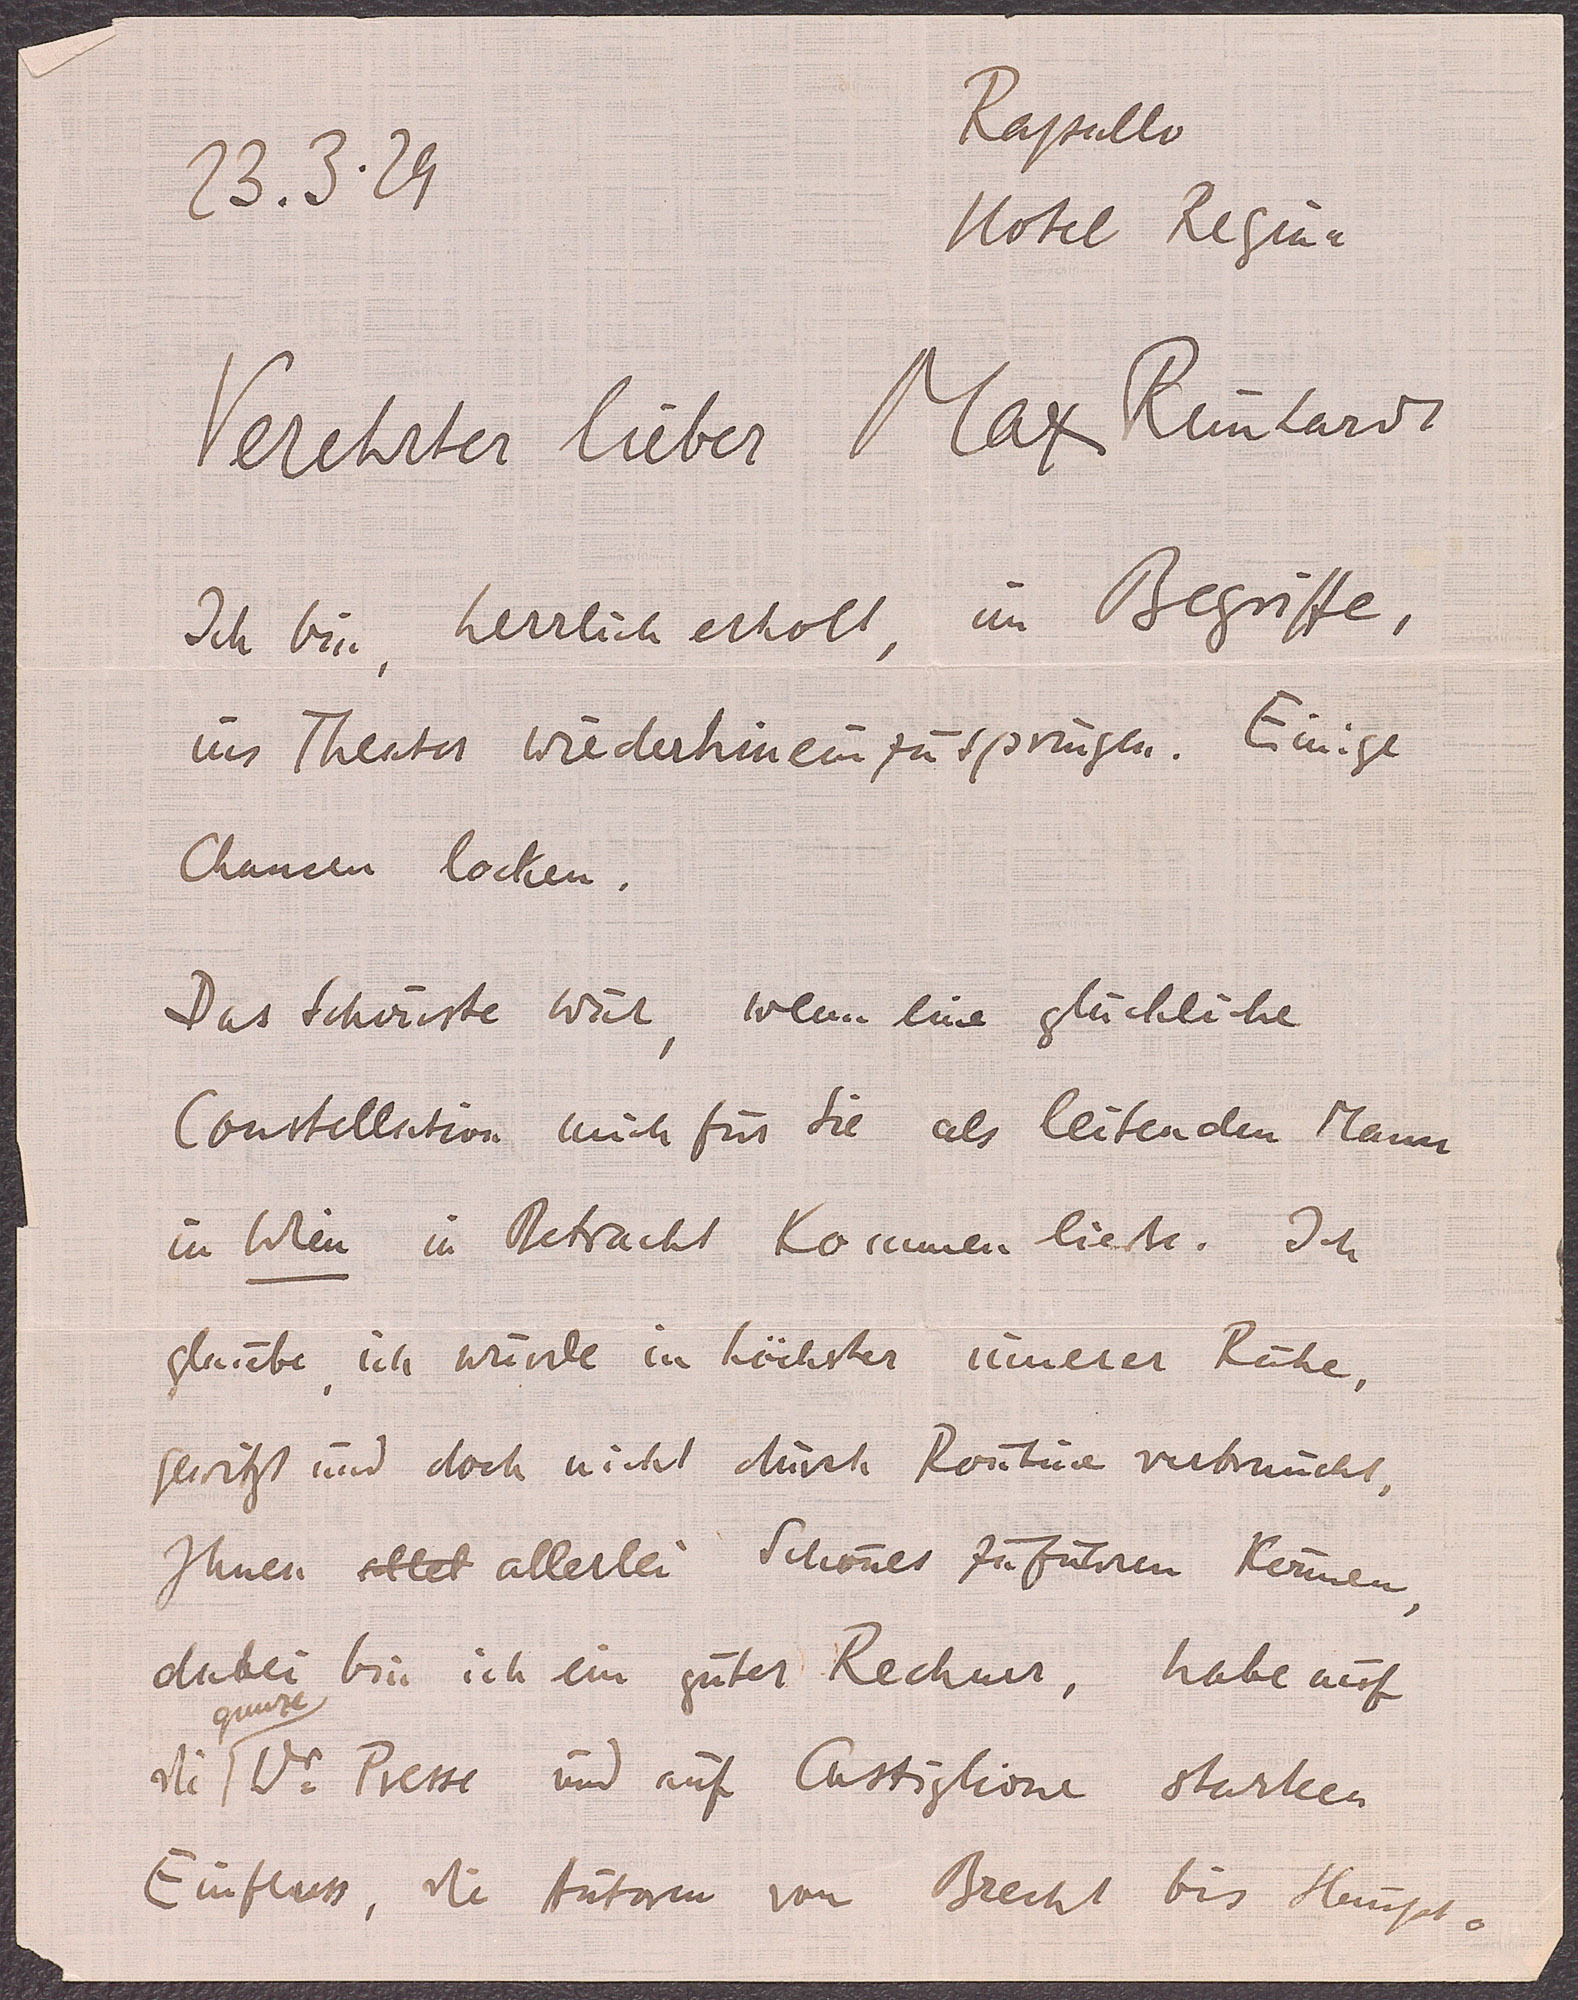 23.3.29
Rapallo
Hotel Regina
Verehrter lieber Max Reinhardt
Ich bin, herrlich erholt, im Begriffe,
ins Theater wiederhineinzuspringen. Einige
Chancen locken.
Das Schönste wär, wenn eine glückliche
Constellation mich für Sie als leitenden Mann
in Wien in Betracht kommen liesse. Ich
glaube, ich würde in höchster innerer Ruhe,
gewitzt und doch nicht durch Routine verbraucht,
Ihnen allerlei Schönes zuführen können,
dabei bin ich ein guter Rechner, habe auf
die ganze Wr. Presse und auf Castiglione starken
Einfluss, die Autoren von Brecht bis Haupt-